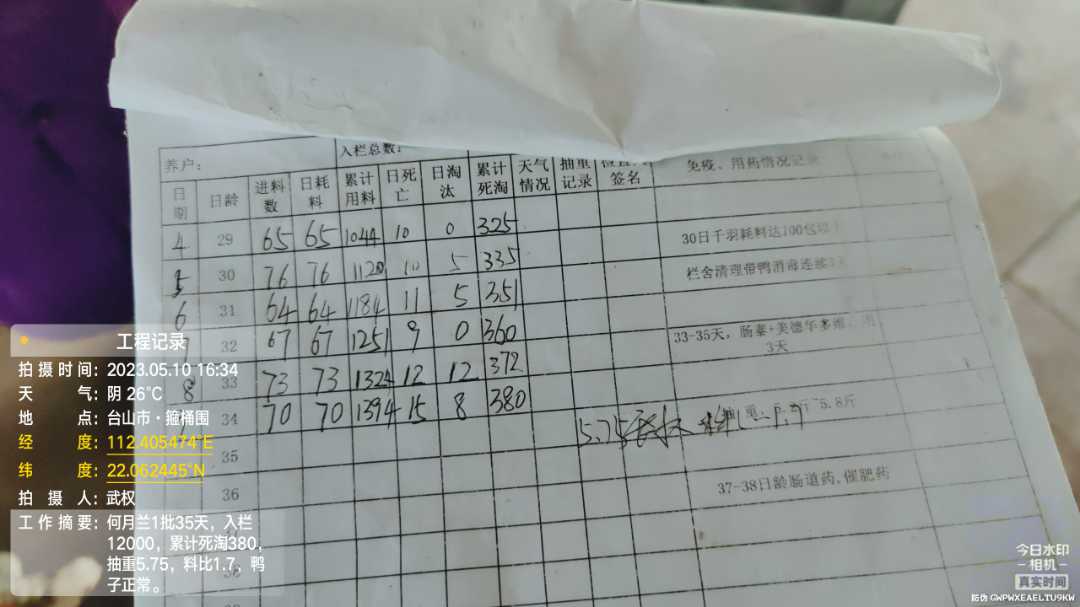 养户: 入栏总数:
日期 日龄 进料数 日耗料 累计用料 日死亡 日淘汰 累计死淘 天气情况 抽重记录 签名 免疫、用药情况记录
4 29 65 65 1044 10 0 325
30日千羽耗料达100包
5 30 76 76 1120 10 5 335
栏舍清理带鸭消毒连续
6 31 64 64 1184 11 5 351
32 67 67 1251 9 0 360
33-35天，肠
3天
8 33 73 73 1324 12 12 372
34 70 70 1394 15 8 380
5.75 5.8斤
35
36 37-38日龄肠道药,催肥药
工程记录
拍摄时间: 2023.05.10 16:34
天气: 阴 26℃
地点: 台山市·箍桶围
经度: 112.405474°E
纬度: 22.062445°N
拍摄人: 武权
工作摘要: 何月兰1批35天，入栏
12000，累计死淘380，
抽重5.75，料比1.7，鸭
子正常。
今日水印
-相机-
真实时间
防伪 GWPWXEAELTU9KW